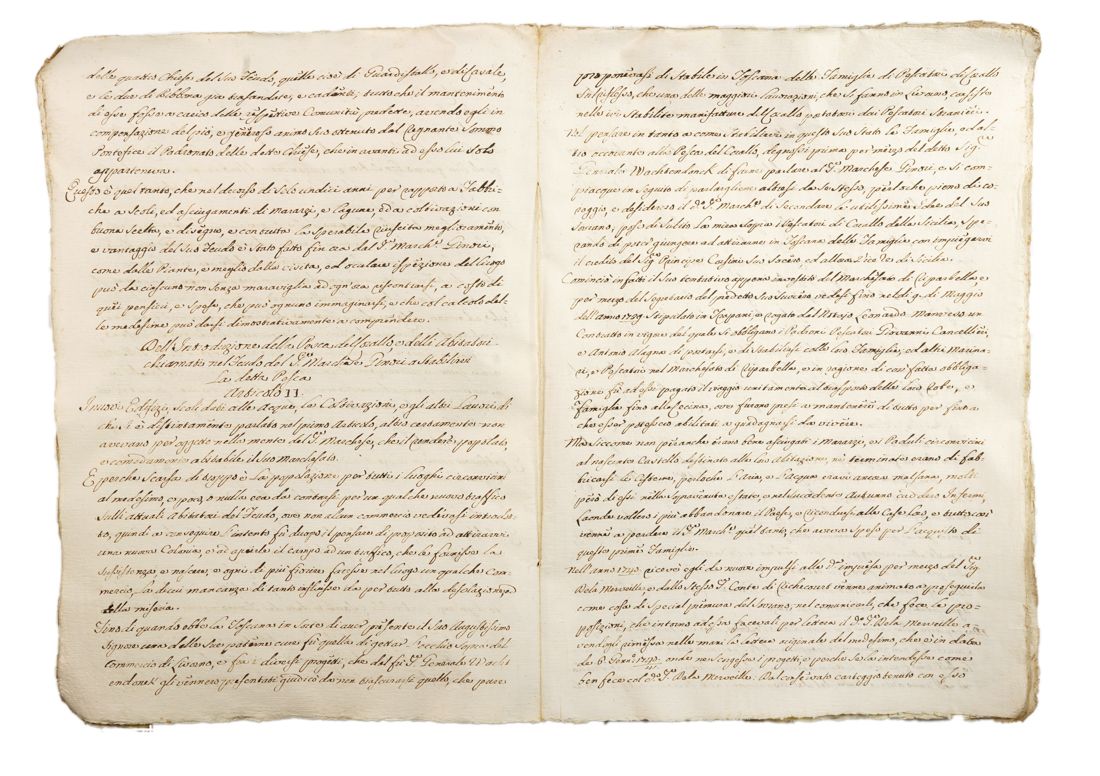 delle quattro Chiese del Suo Feudo, quelle cioè di Guardistallo, e di Casale,
e le due di Bibbona già trasandate, e cadenti; tutto che il mantenimento
di esse fosse a carico delle respettive Comunità predette, avendo egli in
compensazione del pio, e generoso animo Suo ottenuto dal Regnante Sommo
Pontefice il Padronato delle dette Chiese, che in avanti ad esso lui Solo
apparteneva.
Questo è quel tanto, che nel decorso di Soli undici anni per rapporto a Fabbri-
che a Scoli, ed asciugamenti di Marazzi, e lagune, ed a coltivazioni con
buona Scelta, e disegno, e con tutta la Sperabile riuscita miglioramento,
e vantaggio del Suo Feudo è Stato fatto fin ora dal S.r March.e Ginori,
come dalle Piante, e meglio dalla visita, ed oculare ispezione del luogo
può da ciascuno non Senza maraviglia ad ogn'ora riscontrarsi, a costo di
quei pensieri, e Spese, che può ognuno immaginarsi, e che col calcolo del-
le medesime può darsi dimostrativamente a comprendere.
Dell'Introduzione della Pesca del Corallo e delli Abitatori
chiamati nel Feudo del S.re Marchese Ginori a Stabilire
La detta Pesca
Articolo II.
I nuovi Edifizi, Scoli dati alle Acque, le Coltivazioni, e gli altri Lavori di
che Si è distintamente parlato nel primo Articolo, altro certamente non
avevano per oggetto nella mente del S.r Marchese, che il rendere popolato,
e comodamente abitabile il Suo Marchesato.
E perche Scarsa di troppo è La popolazione per tutti i luoghi circonvicini
al medesimo, e poco, o nulla era da contarsi per un qualche nuovo traffico
Sulli attuali Abitatori del Feudo, ove non alcun commercio vedevasi introdotto,
quindi a conseguire l'intento fù d'uopo il pensare di proposito ad attirarvi
una nuova Colonia, e ad aprirle il campo ad un traffico, che le fornisse la
Sussistenza, e nascere, e ogni dì più fiorire facesse nel luogo un qualche Com-
mercio, la di cui mancanza di tanto influisse da per tutto alla desolazione, ed
alla miseria.
Sino di quando ebbe la Toscana in Sorte di aver presente il Suo Augustissimo
Signore una delle Sue paterne cure fu quella di gettar l'occhio Sopra del
commercio di Livorno, e fra i diversi progetti, che dal fu S.r Generale Wacht
endonck gli vennero presentati giudicò da non trascurarsi quello, che pare
proponevasi di Stabilire in Toscana delle Famiglie di Pescatori di Corallo
Sul riflesso, che una delle maggiori lavorazioni, che si fanno in Livorno, consiste
nelle ivi Stabilite manifatture del Corallo portatovi dai Pescatori Stranieri.
Nel pensare in tanto a come Stabilire in questo Suo Stato le Famiglie, ed al-
tro occorrente alla Pesca del Corallo, degnossi prima per mezzo del detto Sig.re
Generale Wachtendonck di farne parlare al S.r Marchese Ginori, e Si com-
piacque in Seguito di parlargliene altresì da Se Stesso, perloche pieno di co-
raggio, e desideroso il d.o S.r March.e di Secondare le utilissime idee del Suo
Sovrano, pose di Subito La mira dopo i Pescatori di Corallo della Sicilia, Spe-
rando di poter giungere ad attirarne in Toscana delle Famiglie con impiegarvi
il credito del Sig.re Principe Corsini Suo Socero, ed allora Vice Re di Sicilia.
Cominciò infatti il Suo tentativo appena investito del Marchesato di Riparbella, e
per mezzo del Segretario del predetto Suo Suocero vedesi fino nel dì 9. di Maggio
dell'anno 1739. Stipulato in Trapani, e rogato dal Notajo Leonardo Marrese un
Contratto in vigore del quale Si obbligano i Padroni Pescatori Giovanni Cancellieri,
e Antonio Alagna di portarsi, e di Stabilirsi colle loro Famiglie, ed altri Marina-
ri, e Pescatori nel Marchesato di Riparbella, e in ragione di così fatta obbliga-
zione fù ad essi pagato il viaggio unitamente al trasporto delle loro robe, e
famiglie fino alla Cecina, ove furono presi a mantenersi di tutto per fino a
che esser potessero abilitati a guadagnarsi da vivere.
Ma Siccome non per anche erano bene asciugati i Marazzi, e i Paduli circonvicini
al nascente Castello destinato alla loro Abitazione, nè terminate erano di fab-
bricarsi le Cisterne, perloche l'aria, e l'acqua eravi ancora malsana, molti
però di essi nella Sopravenuta estate, e nel Succedente Autunno caddero Infermi,
Laonde vollero i più abbandonare il Paese, e ricondursi alle Case loro, e tutto così
venne a perdere il S.r March.e quel tanto, che aveva Speso per l'acquisto di
queste prime Famiglie.
Nell'anno 1740. ricevè egli de nuovi impulsi alla d.a impresa per mezzo del Sig.
Dela Merveille, e dallo Stesso S.r Conte di Richecourt venne animato a proseguirla
come cosa di Special premura del Sovrano; nel comunicarli, che fece le pro-
posizioni, che intorno ad essa facevali per lettera il d.o S.r Dela Merveille a-
vendogli rimesso nelle mani la lettera originale del medesimo, che è in data
de 6. Genn.o 1740. onde ne Scorgesse i progetti, e perche Se la intendesse come
ben fece col d.o S.r Dela Merveille. Dal conservato carteggio tenuto con esso